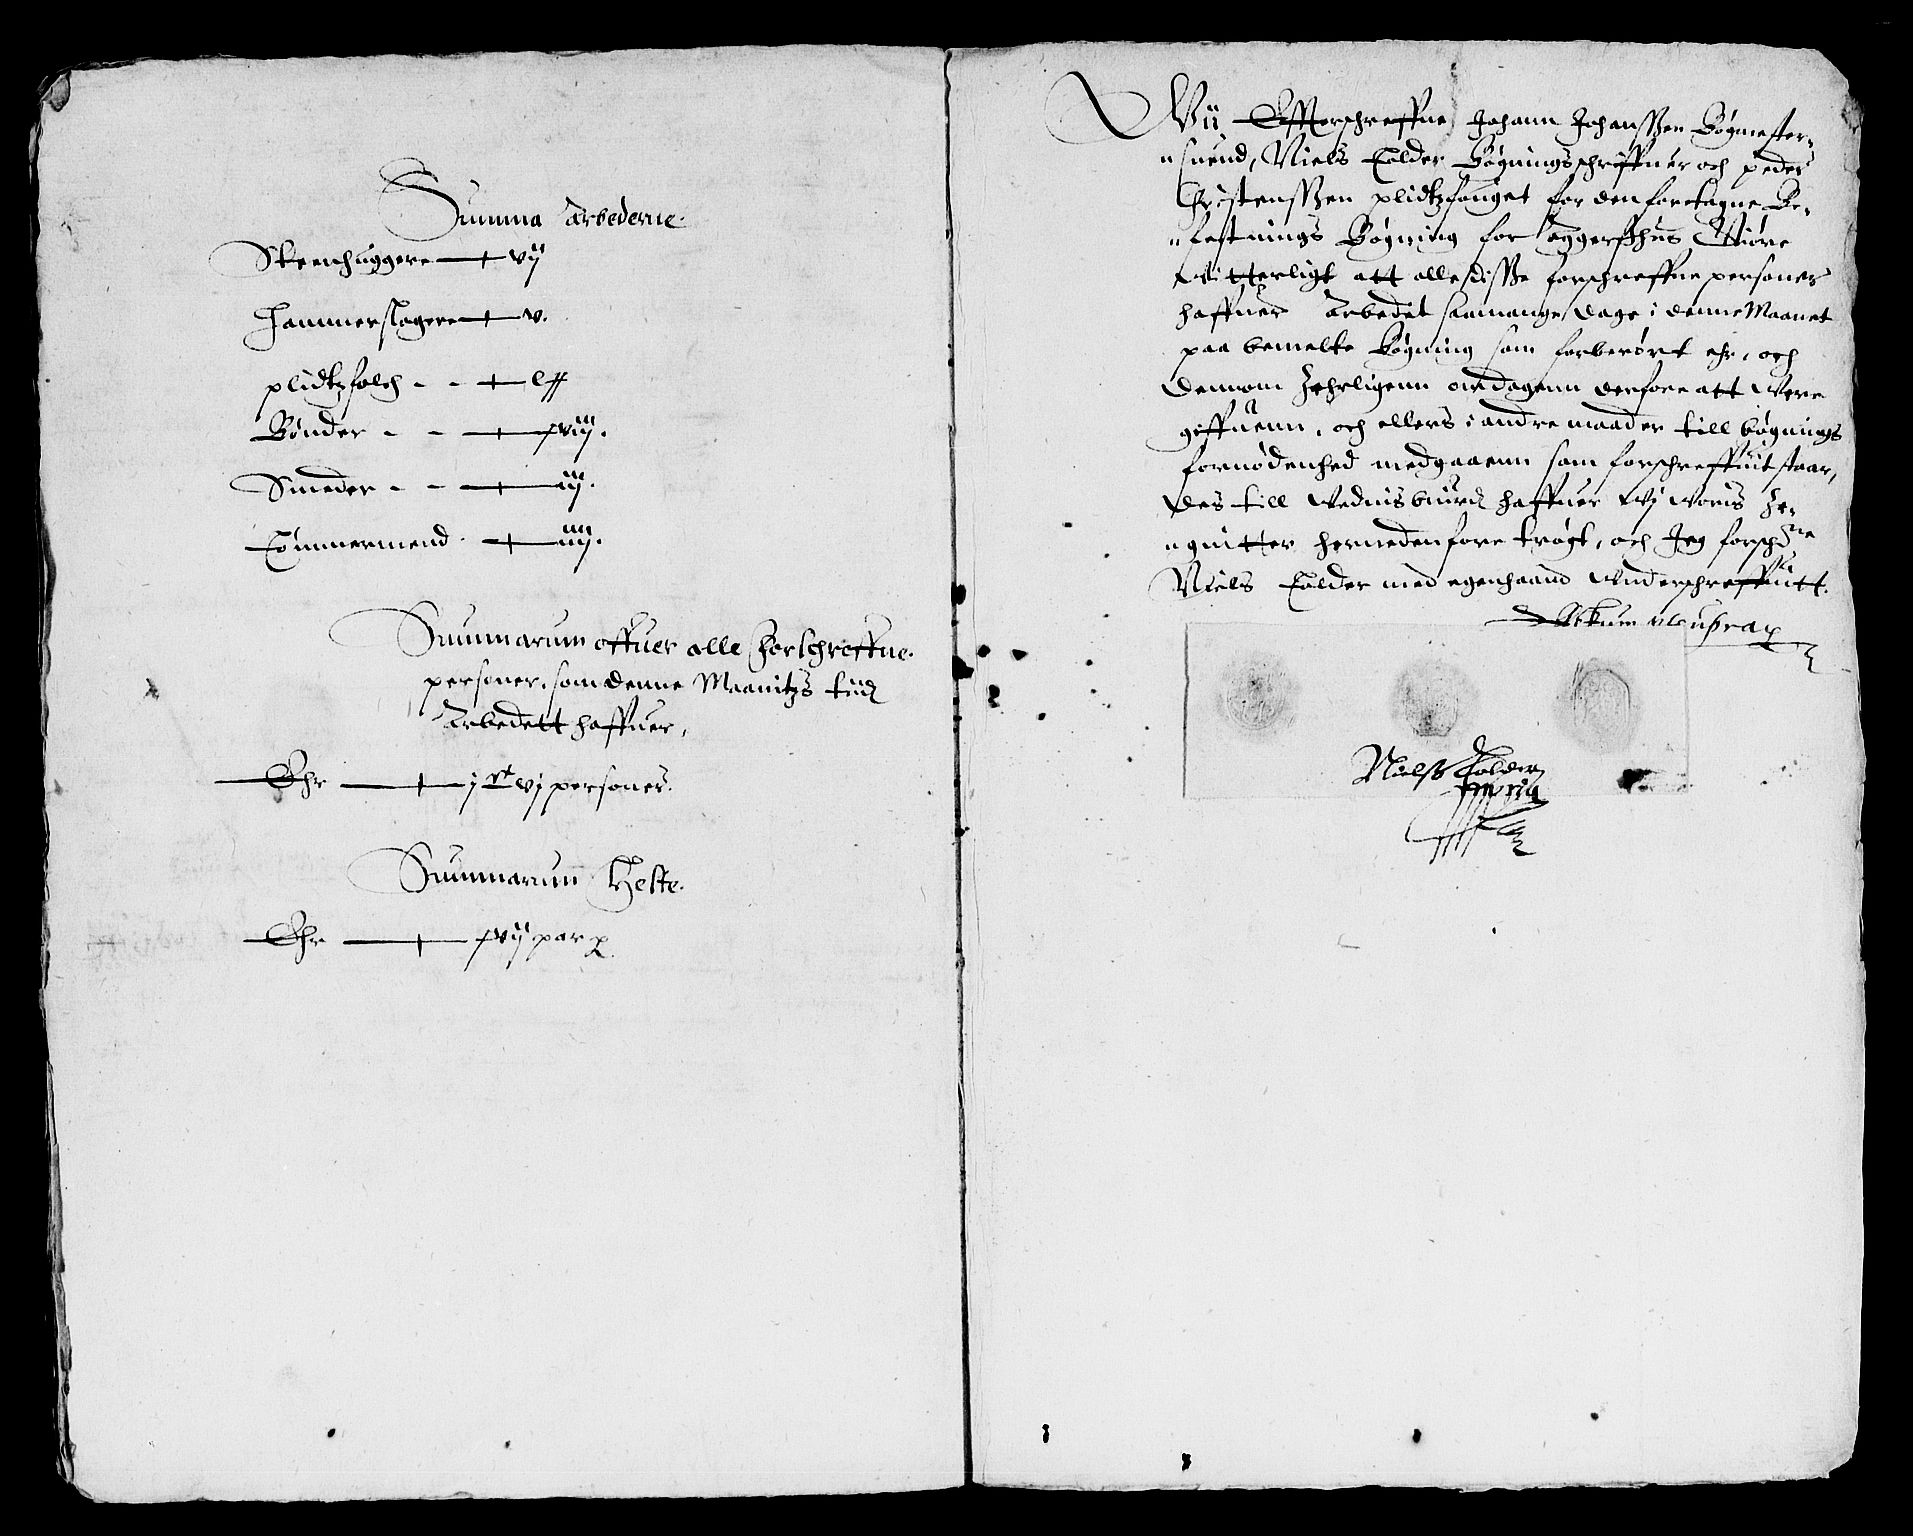 Summa Arbederne.
Steenhuggere — vij
Hammerslagere — v.
plidtzfolch - - — lxx
Bønder - - — xviij.
Smeder - - — iij.
Tømmermend - — iiij.
Summarum offuer alle Forschreffne
personer, som denne Maanitzs tiid
Arbedett haffuer,
Ehr — j Ct vj personer.
Summarum Heste.
Ehr — xvij par
Wii Effterschreffne Johann Johanssen Bøgmester-
suend, Niels Colder Bøgningsschriffuer och peder
Christenssen plidtzfouget for den foretagne Be-
festnings Bøgning for Aggershus Giøre
witterligt att alle disse forschreffne personer
haffuer Arbedet saamange dage i denne Maanet
paa bemelte Bøgning som forberørt ehr, och
dennom Zehrligenn om dagenn derfore att were
giffuenn, och ellers i andre maader till bøgnings
fornødenhed medgaaenn som forschreffuit staar,
Des till wednisbiurd haffuer wj woris Ze-
gnitter hernedenfore trøgt, och Jeg forschne
Niels Colder med egenhaand underschreffuitt.
Actum ut supra
Niels Colder